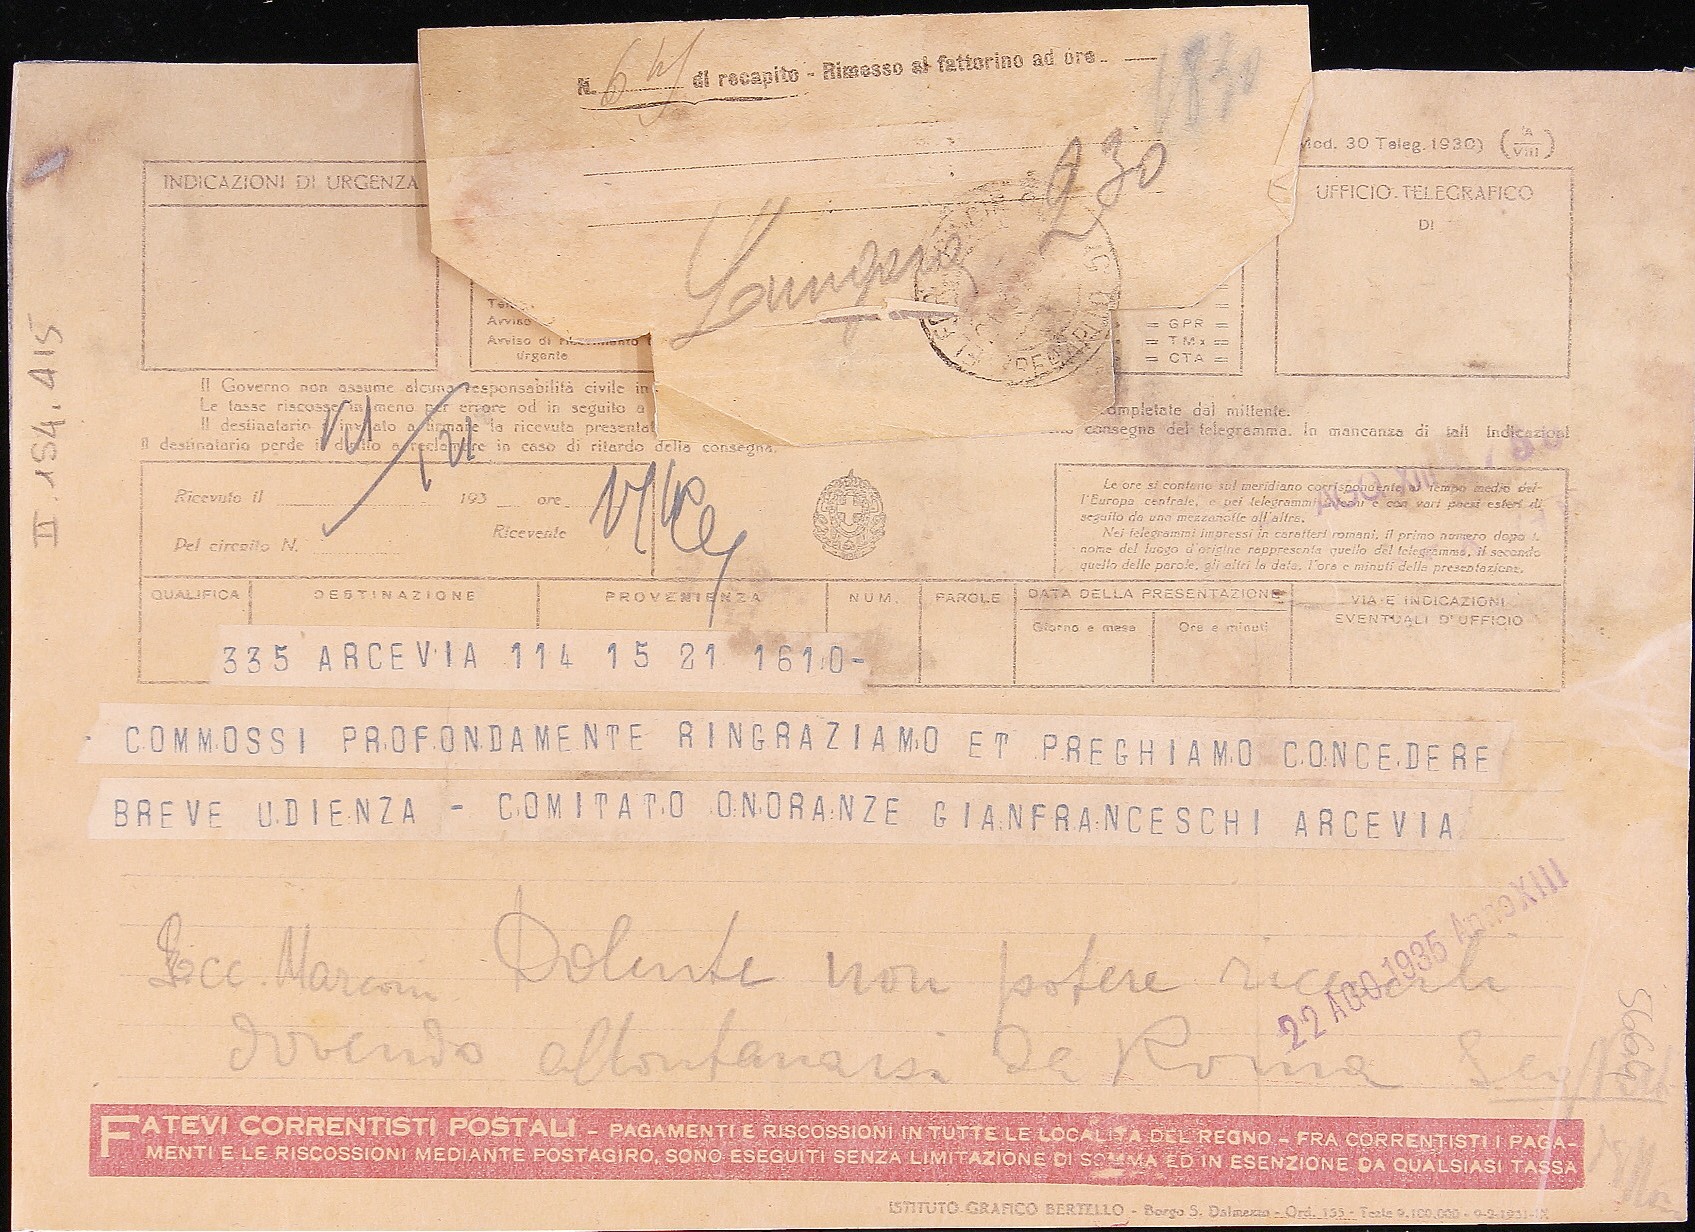 N. di recapito - Rimesso al fattorino ad ore
1830
930
Lungara
(Mod. 30 Teleg. 1930) (A VIII)
INDICAZIONI DI URGENZA
UFFICIO TELEGRAFICO
DI
Avviso
Avviso di
urgente
= GPR =
= TMx =
= CTA =
II. 154. 415
Il Governo non assume alcuna responsabilità civile in
Le tasse riscosse in meno per errore od in seguito a
completate dal mittente.
Il destinatario è invitato a firmare la ricevuta presentat
consegna del telegramma. In mancanza di tali indicazioni
Il destinatario perde il diritto a reclamare in caso di ritardo della consegna.
Ricevuto il 193 ore
Ricevente
Pel circuito N.
Le ore si contano sul meridiano corrispondente al tempo medio del-
l'Europa centrale, e pei telegrammi interni e con vari paesi esteri di
seguito da una mezzanotte all'altra.
Nei telegrammi impressi in caratteri romani, il primo numero dopo il
nome del luogo d'origine rappresenta quello del telegramma, il secondo
quello delle parole, gli altri la data, l'ora e minuti della presentazione.
QUALIFICA DESTINAZIONE PROVENIENZA NUM. PAROLE DATA DELLA PRESENTAZIONE VIA E INDICAZIONI
Giorno e mese Ore e minuti EVENTUALI D'UFFICIO
335 ARCEVIA 114 15 21 1610-
- COMMOSSI PROFONDAMENTE RINGRAZIAMO ET PREGHIAMO CONCEDERE
BREVE UDIENZA - COMITATO ONORANZE GIANFRANCESCHI ARCEVIA
22 AGO. 1935 Anno XIII
Ecc. Marconi Dolente non potere riceverli
dovendo allontanarsi da Roma
FATEVI CORRENTISTI POSTALI - PAGAMENTI E RISCOSSIONI IN TUTTE LE LOCALITA DEL REGNO - FRA CORRENTISTI I PAGA-
MENTI E LE RISCOSSIONI MEDIANTE POSTAGIRO, SONO ESEGUITI SENZA LIMITAZIONE DI SOMMA ED IN ESENZIONE DA QUALSIASI TASSA
ISTITUTO GRAFICO BERTELLO - Borgo S. Dalmazzo - Ord. 155 - Teste 9.100.000 - 9-2-1931-IX